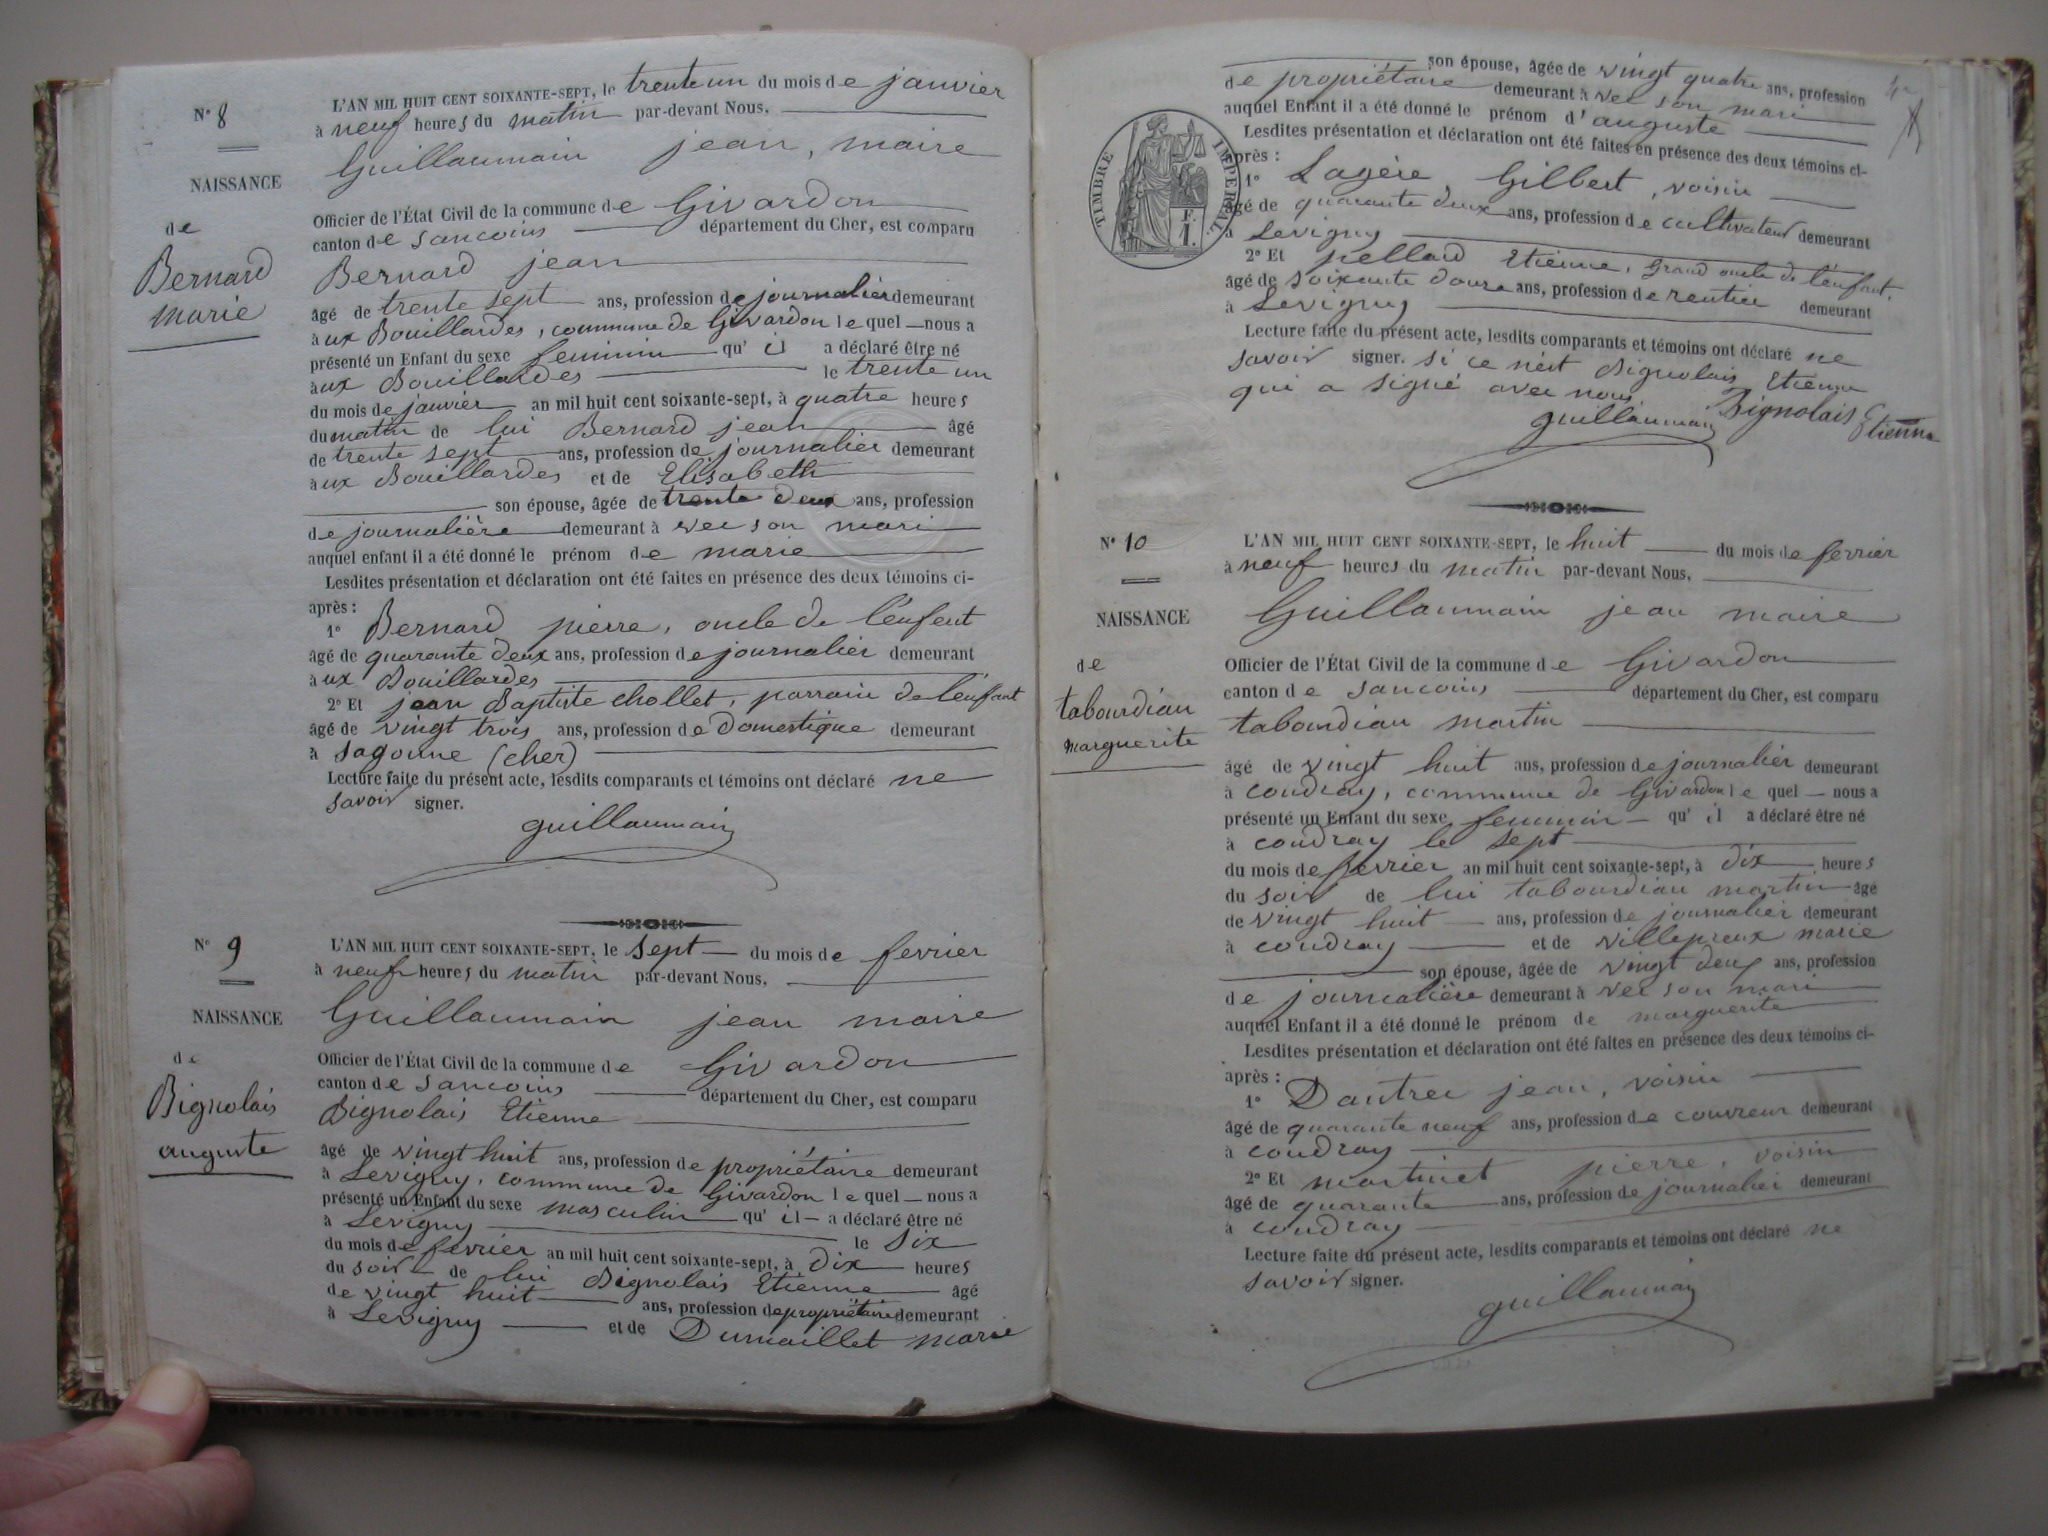 N° 8
NAISSANCE
de
Bernard
marie
L'AN MIL HUIT CENT SOIXANTE-SEPT, le trente un du mois de janvier
à neuf heures du matin par-devant Nous,
Guillaumain jean, maire
Officier de l'État Civil de la commune de Givardon
canton de Sancoins département du Cher, est comparu
Bernard jean
âgé de trente sept ans, profession de journalier demeurant
aux Bouillardes, commune de Givardon lequel nous a
présenté un Enfant du sexe feminin qu'il a déclaré être né
aux Bouillardes le trente un
du mois de janvier an mil huit cent soixante-sept, à quatre heures
du matin de lui Bernard jean âgé
de trente sept ans, profession de journalier demeurant
aux Bouillardes et de Elisabeth
son épouse, âgée de trente deux ans, profession
de journalière demeurant à vec son mari
auquel enfant il a été donné le prénom de marie
Lesdites présentation et déclaration ont été faites en présence des deux témoins ci-
après :
1° Bernard pierre, oncle de l'enfent
âgé de quarante deux ans, profession de journalier demeurant
aux Bouillardes
2° Et jean Baptiste chollet, parrain de l'enfant
âgé de vingt trois ans, profession de Domestique demeurant
à Sagonne (cher)
Lecture faite du présent acte, lesdits comparants et témoins ont déclaré ne
savoir signer.
guillaumain
N° 9
NAISSANCE
de
Bignolais
auguste
L'AN MIL HUIT CENT SOIXANTE-SEPT, le sept du mois de fevrier
à neuf heures du matin par-devant Nous,
Guillaumain jean maire
Officier de l'État Civil de la commune de Givardon
canton de Sancoins département du Cher, est comparu
Bignolais Etienne
âgé de vingt huit ans, profession de propriétaire demeurant
à Levigny, commune de Givardon lequel nous a
présenté un Enfant du sexe masculin qu'il a déclaré être né
à Levigny le six
du mois de fevrier an mil huit cent soixante-sept, à dix heures
du soir de lui Bignolais Etienne âgé
de vingt huit ans, profession de propriétaire demeurant
à Levigny et de Dumaillet marie
son épouse, âgée de vingt quatre ans, profession
de propriétaire demeurant à vec son mari
auquel Enfant il a été donné le prénom d'auguste
Lesdites présentation et déclaration ont été faites en présence des deux témoins ci-
après :
TIMBRE IMPÉRIAL.
F.
I.
1° Lagère Gilbert, voisin
âgé de quarante deux ans, profession de cultivateur demeurant
à Levigny
2° Et pellard Etienne, Grand oncle de l'enfant.
âgé de soixante douze ans, profession de rentier demeurant
à Levigny
Lecture faite du présent acte, lesdits comparants et témoins ont déclaré ne
savoir signer. si ce n'est Bignolais Etienne
qui a signé avec nous
guillaumain Bignolais Etienne
N° 10
NAISSANCE
de
tabourdiau
marguerite
L'AN MIL HUIT CENT SOIXANTE-SEPT, le huit du mois de fevrier
à neuf heures du matin par-devant Nous,
Guillaumain jean maire
Officier de l'État Civil de la commune de Givardon
canton de Sancoins département du Cher, est comparu
tabourdiau martin
âgé de vingt huit ans, profession de journalier demeurant
à coudray, commune de Givardon lequel nous a
présenté un Enfant du sexe feminin qu'il a déclaré être né
à coudray le sept
du mois de fevrier an mil huit cent soixante-sept, à dix heures
du soir de lui tabourdiau martin âgé
de vingt huit ans, profession de journalier demeurant
à coudray et de villepreux marie
son épouse, âgée de vingt deux ans, profession
de journalière demeurant à vec son mari
auquel Enfant il a été donné le prénom de marguerite
Lesdites présentation et déclaration ont été faites en présence des deux témoins ci-
après :
1° Dautrec jean, voisin
âgé de quarante neuf ans, profession de couvreur demeurant
à coudray
2° Et martinet pierre, voisin
âgé de quarante ans, profession de journalier demeurant
à coudray
Lecture faite du présent acte, lesdits comparants et témoins ont déclaré ne
savoir signer.
guillaumain